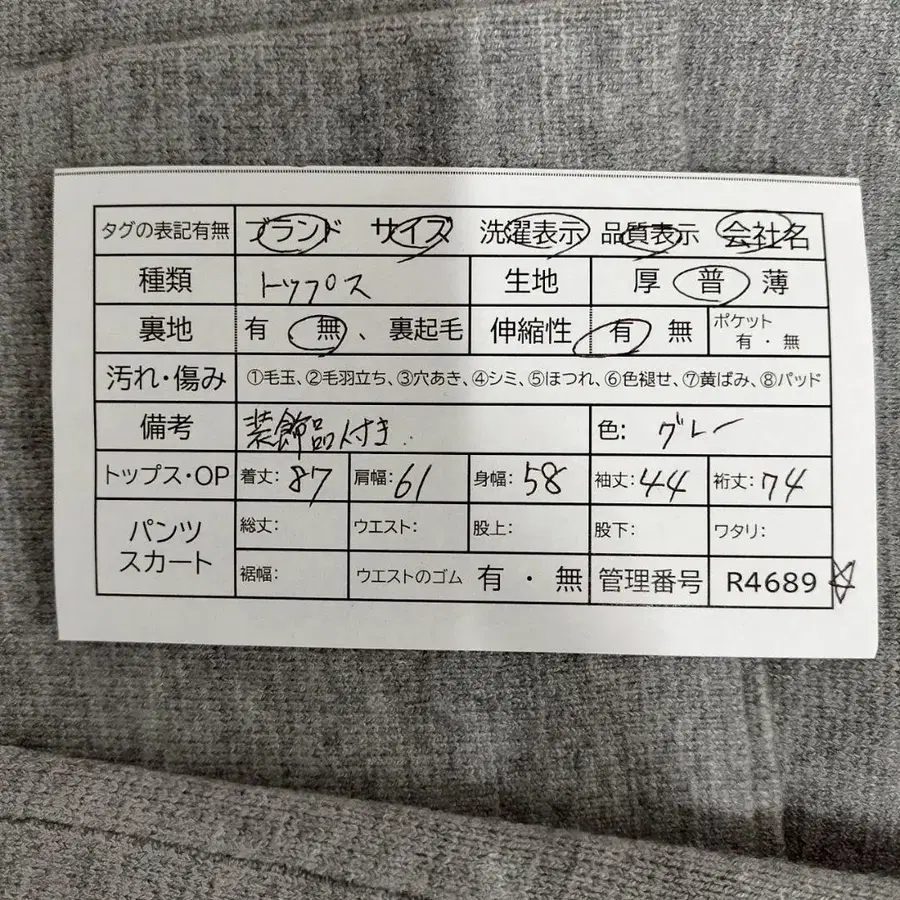 タグの表記有無 ブランド サイズ 洗濯表示 品質表示 会社名
種類 トップス 生地 厚 普 薄
裏地 有 無、裏起毛 伸縮性 有 無 ポケット 有・無
汚れ・傷み ①毛玉、②毛羽立ち、③穴あき、④シミ、⑤ほつれ、⑥色褪せ、⑦黄ばみ、⑧パッド
備考 装飾品付き. 色: グレー
トップス・OP 着丈: 87 肩幅: 61 身幅: 58 袖丈: 44 裄丈: 74
パンツ スカート 総丈: ウエスト: 股上: 股下: ワタリ:
裾幅: ウエストのゴム 有・無 管理番号 R4689 ☆